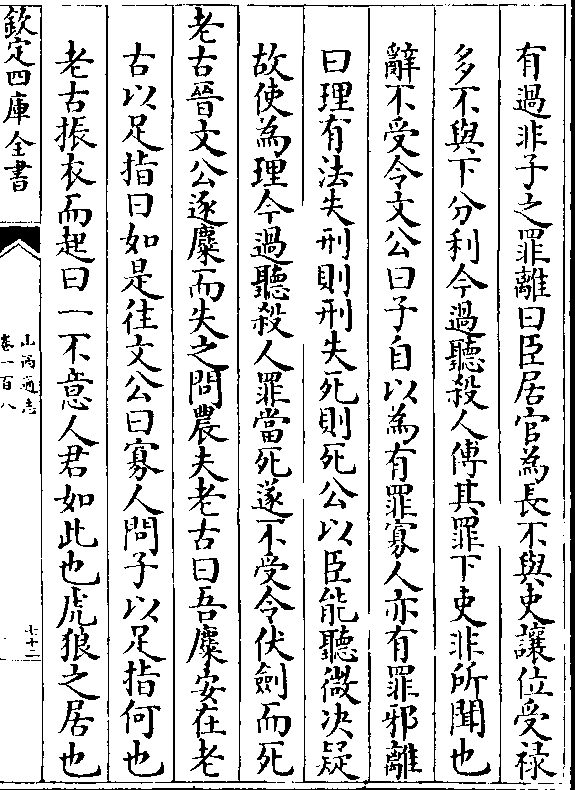 有過非子之罪離曰臣居官為長不與吏讓位受祿
多不與下分利今過聽殺人傅其罪下吏非所聞也
辭不受令文公曰子自以為有罪寡人亦有罪邪離
曰理有法失刑則刑失死則死公以臣能聽微决疑
故使為理今過聽殺人罪當死遂不受令伏劍而死
老古晉文公逐麋而失之問農夫老古曰吾麋安在老
古以足指曰如是往文公曰寡人問子以足指何也
老古振衣而起曰一不意人君如此也虎狼之居也
欽定四庫全書
山西通志
卷一百八
七十二